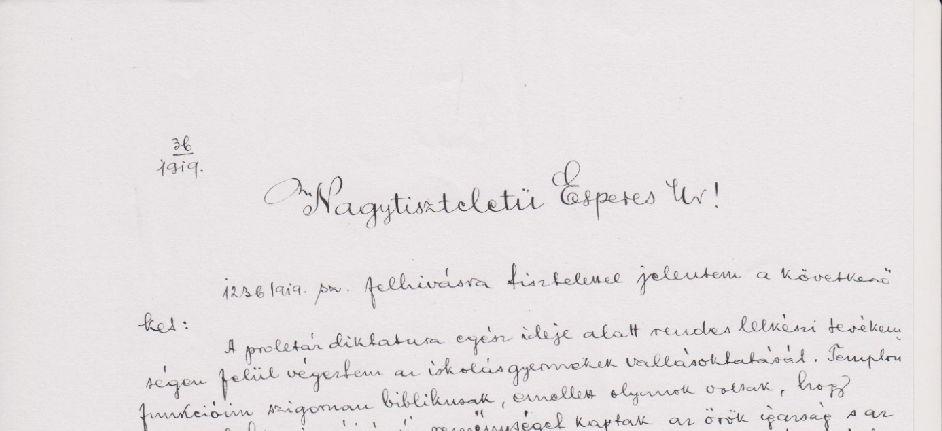 36
1919.
Nagytiszteletü Esperes Ur!
1236/1919. sz. felhivásra tisztelettel jelentem a következő
ket:
A proletár diktatura egész ideje alatt rendes lelkészi tevéken
ségen felül végeztem az iskolásgyermekek vallásoktatását. Templomi
funkcióim szigoruan biblikusak, emellett olyanok voltak, hogy
kaptak az örök igazság s az